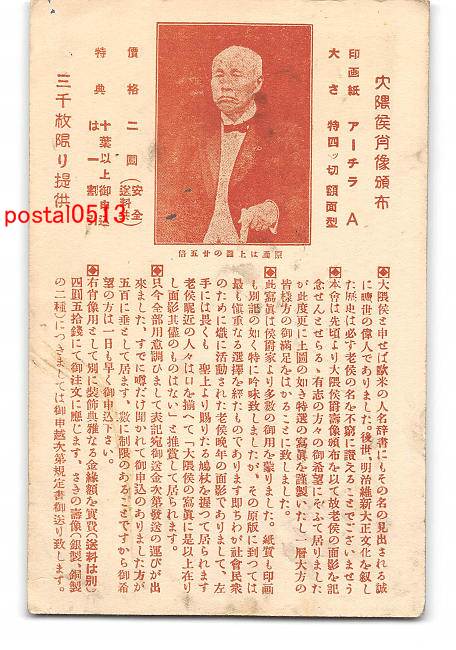 大隈侯肖像頒布
印画紙 アーチラ A
大さ 特四ッ切額面型
原画は上圖の廿五倍
價格 二圓(安全送料共)
特典 十葉以上御申込は一割
三千枚限り提供
postal0513
◆大隈侯と申せば歐米の人名辭書にもその名の見出される誠
に曠世の偉人でありました。後世、明治維新大正文化を叙し
た歴史は必ず老侯の名を不窮に讃えることでございませう
本會は先頃より大隈侯爵壽像頒布を以て故老侯の面影を記
念せんとせらるゝ有志の方々の御希望にそふて居りました
が此度更に上圖の如き特選の寫眞を謹製いたし一層大方の
皆樣方の御滿足をはかることに致しました。
◆此寫眞は侯爵家より多數の御用を蒙りました。紙質も印画
も別記の如く特に吟味致しましたが、その原版に到つては
最も愼重なる選擇を經たものであります即ちわが社會民衆
のために熾に活動された老侯晩年の面影でありまして、左
手には畏くも 聖上より賜りたる鳩杖を握つて居られます
老侯昵近の人々は口を揃へて「大隈侯の寫眞に是以上在り
し面影其儘のものはない」と推賞して居られます。
◆只今全部用意調ひまして表記宛御送金次第發送の運びが出
來ました、すでに噂だけ聞かれて御申込のありました方が
五百に垂として居ります、數に制限のあることですから御希
望の方は一日も早く御申込下さい。
◆右肖像用として別に裝飾典雅なる金緣額を實費(送料は別)
四圓五拾錢にて御注文に應じます。さきの壽像(銀製、銅製
の二種)につきましては御申越次第規定書御送り致します。